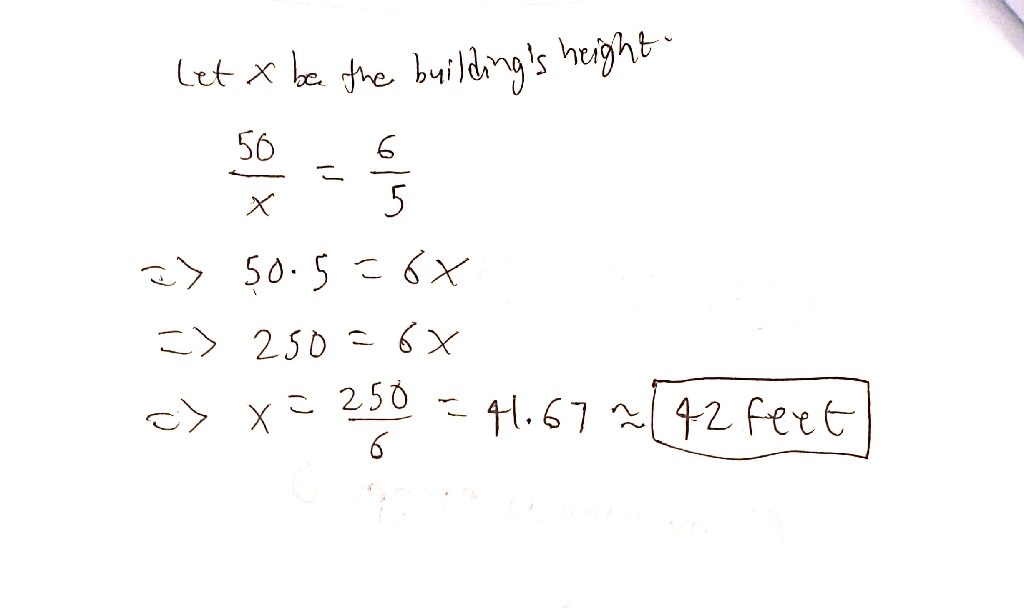 Let x be the building's height.
50/x = 6/5
=> 50.5 = 6x
=> 250 = 6x
=> x = 250/6 = 41.67 ≈ 42 feet